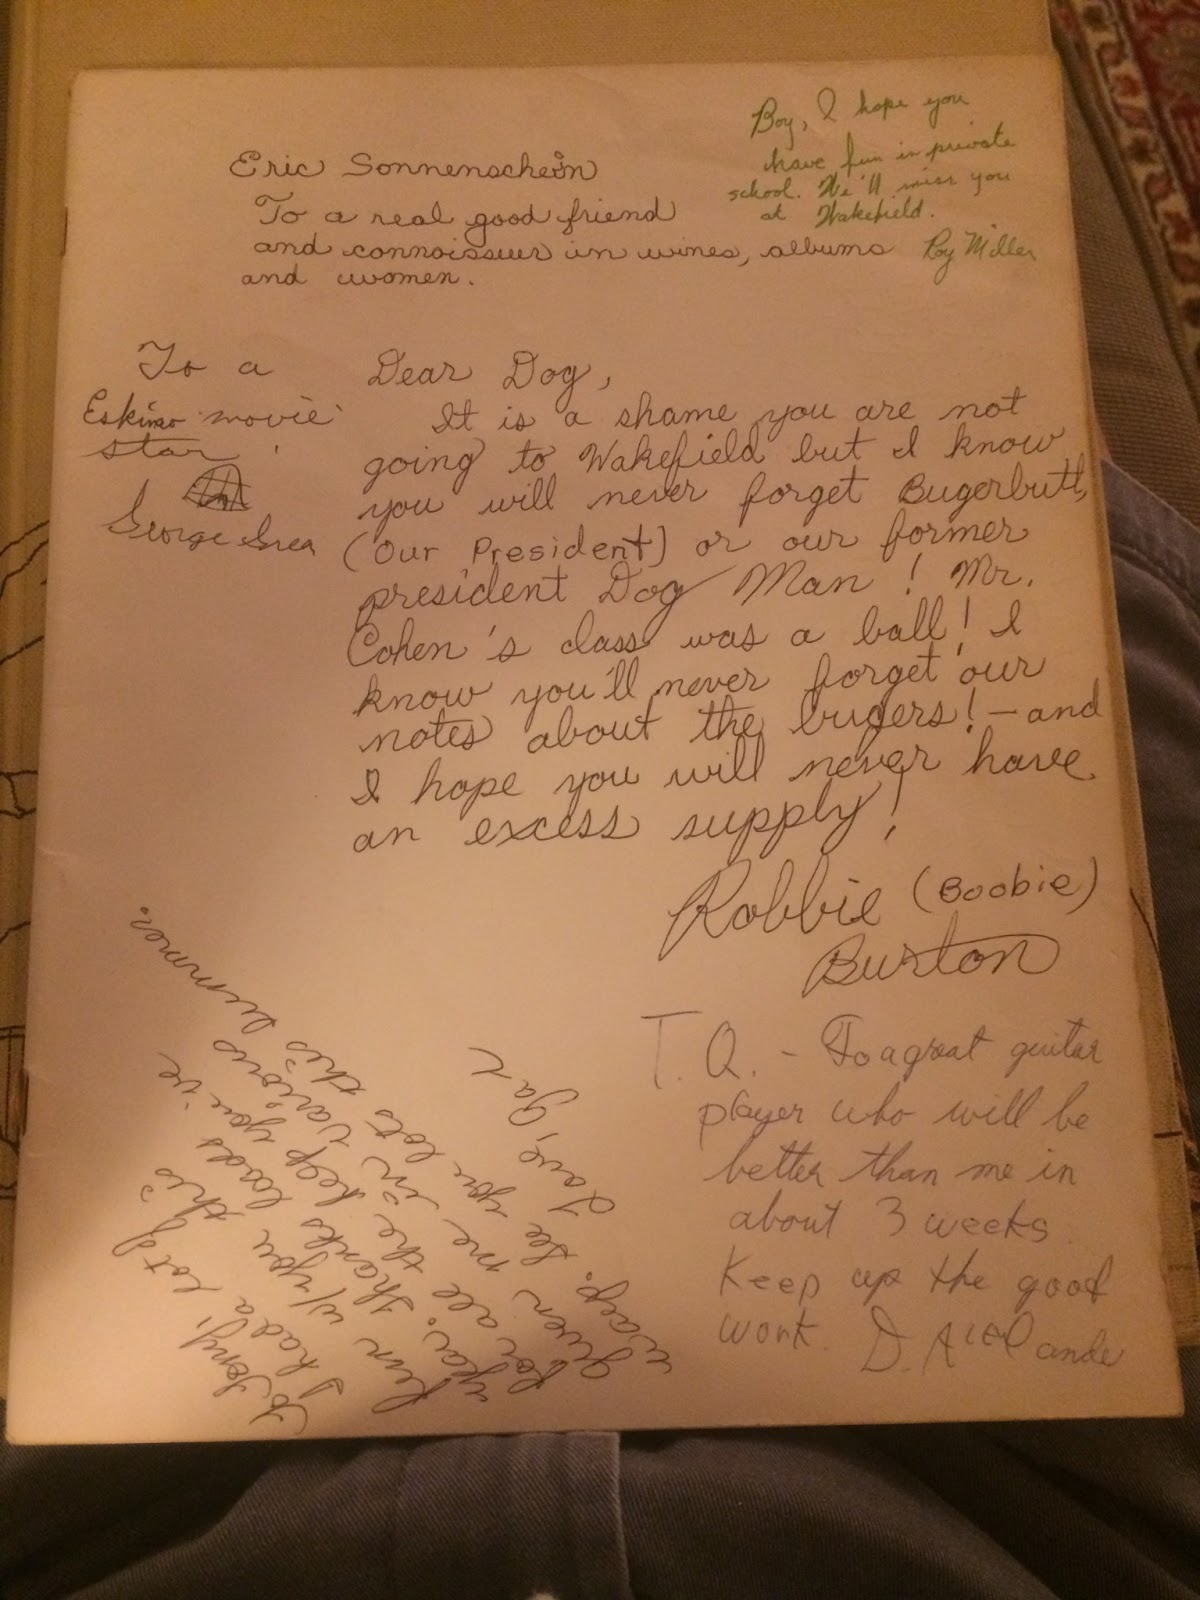 Eric Sonnenschein
To a real good friend
and connoisseur in wines, albums
and women.
Boy, I hope you
have fun in private
school. We'll miss you
at Wakefield.
Roy Miller
To a
Eskimo movie
star!
George
Dear Dog,
It is a shame you are not
going to Wakefield but I know
you will never forget Bugerbutt,
(Our President) or our former
president Dog Man! Mr.
Cohen's class was a ball! I
know you'll never forget our
notes about the bugers! - and
I hope you will never have
an excess supply!
Robbie (Boobie)
Burton
To Tony,
I had a lot of
fun w/ you this
year. thanks loads
for all the help you've
given me in various
ways. See you lots this summer.
Love,
T.Q. - To a great guitar
player who will be
better than me in
about 3 weeks.
Keep up the good
work. D.